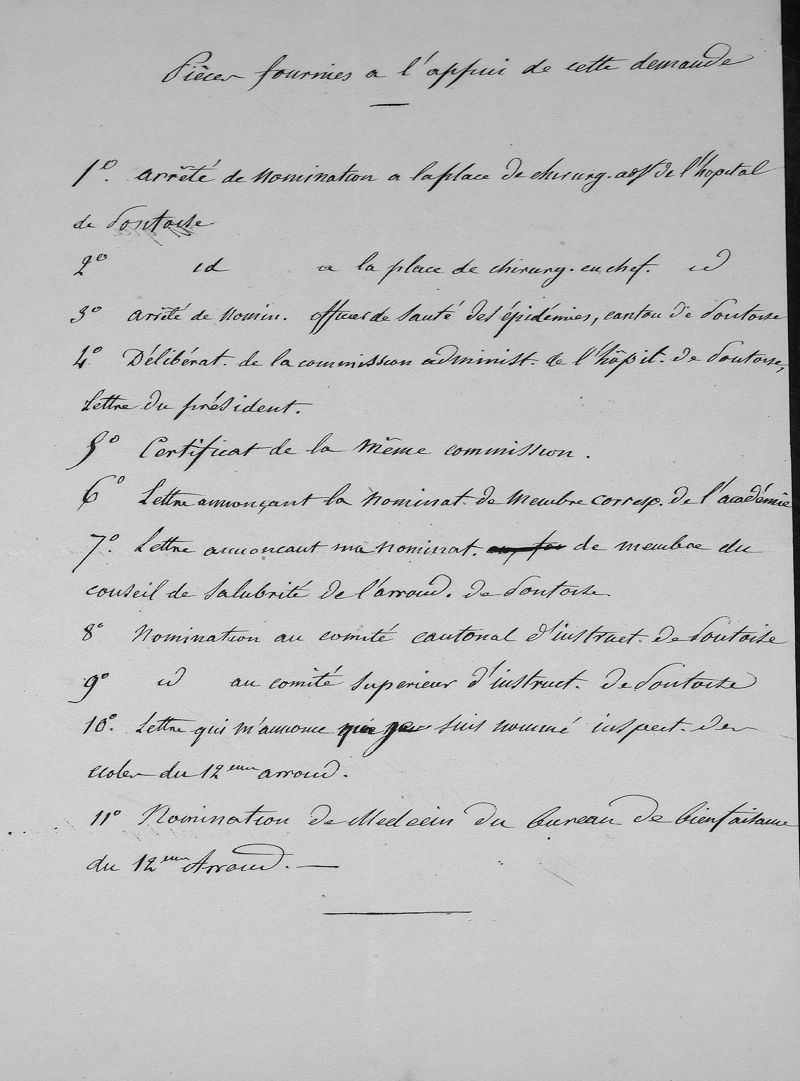 Pièces fournies a l'appui de cette demande
1º. arrêté de nomination a la place de chirurg. adjt de l'hôpital
de Pontoise
2º id a la place de chirurg. en chef. id
3º arrêté de nomin. officier de santé des épidémies, canton de Pontoise
4º Délibérat. de la commission administ. de l'hôpit. de Pontoise,
Lettre du président.
5º Certificat de la même commission.
6º Lettre annonçant la nominat. de membre corresp. de l'académie
7º. Lettre annoncant ma nominat. de membre du
conseil de salubrité de l'arrond. de Pontoise.
8º Nomination au comité cantonal d'instruct. de Pontoise
9º id au comité superieur d'instruct. de Pontoise
10º. Lettre qui m'annonce que je suis nommé inspect. des
ecoles du 12eme arrond.
11º Nomination de Medecin du bureau de bienfaisance
du 12eme Arrond. —